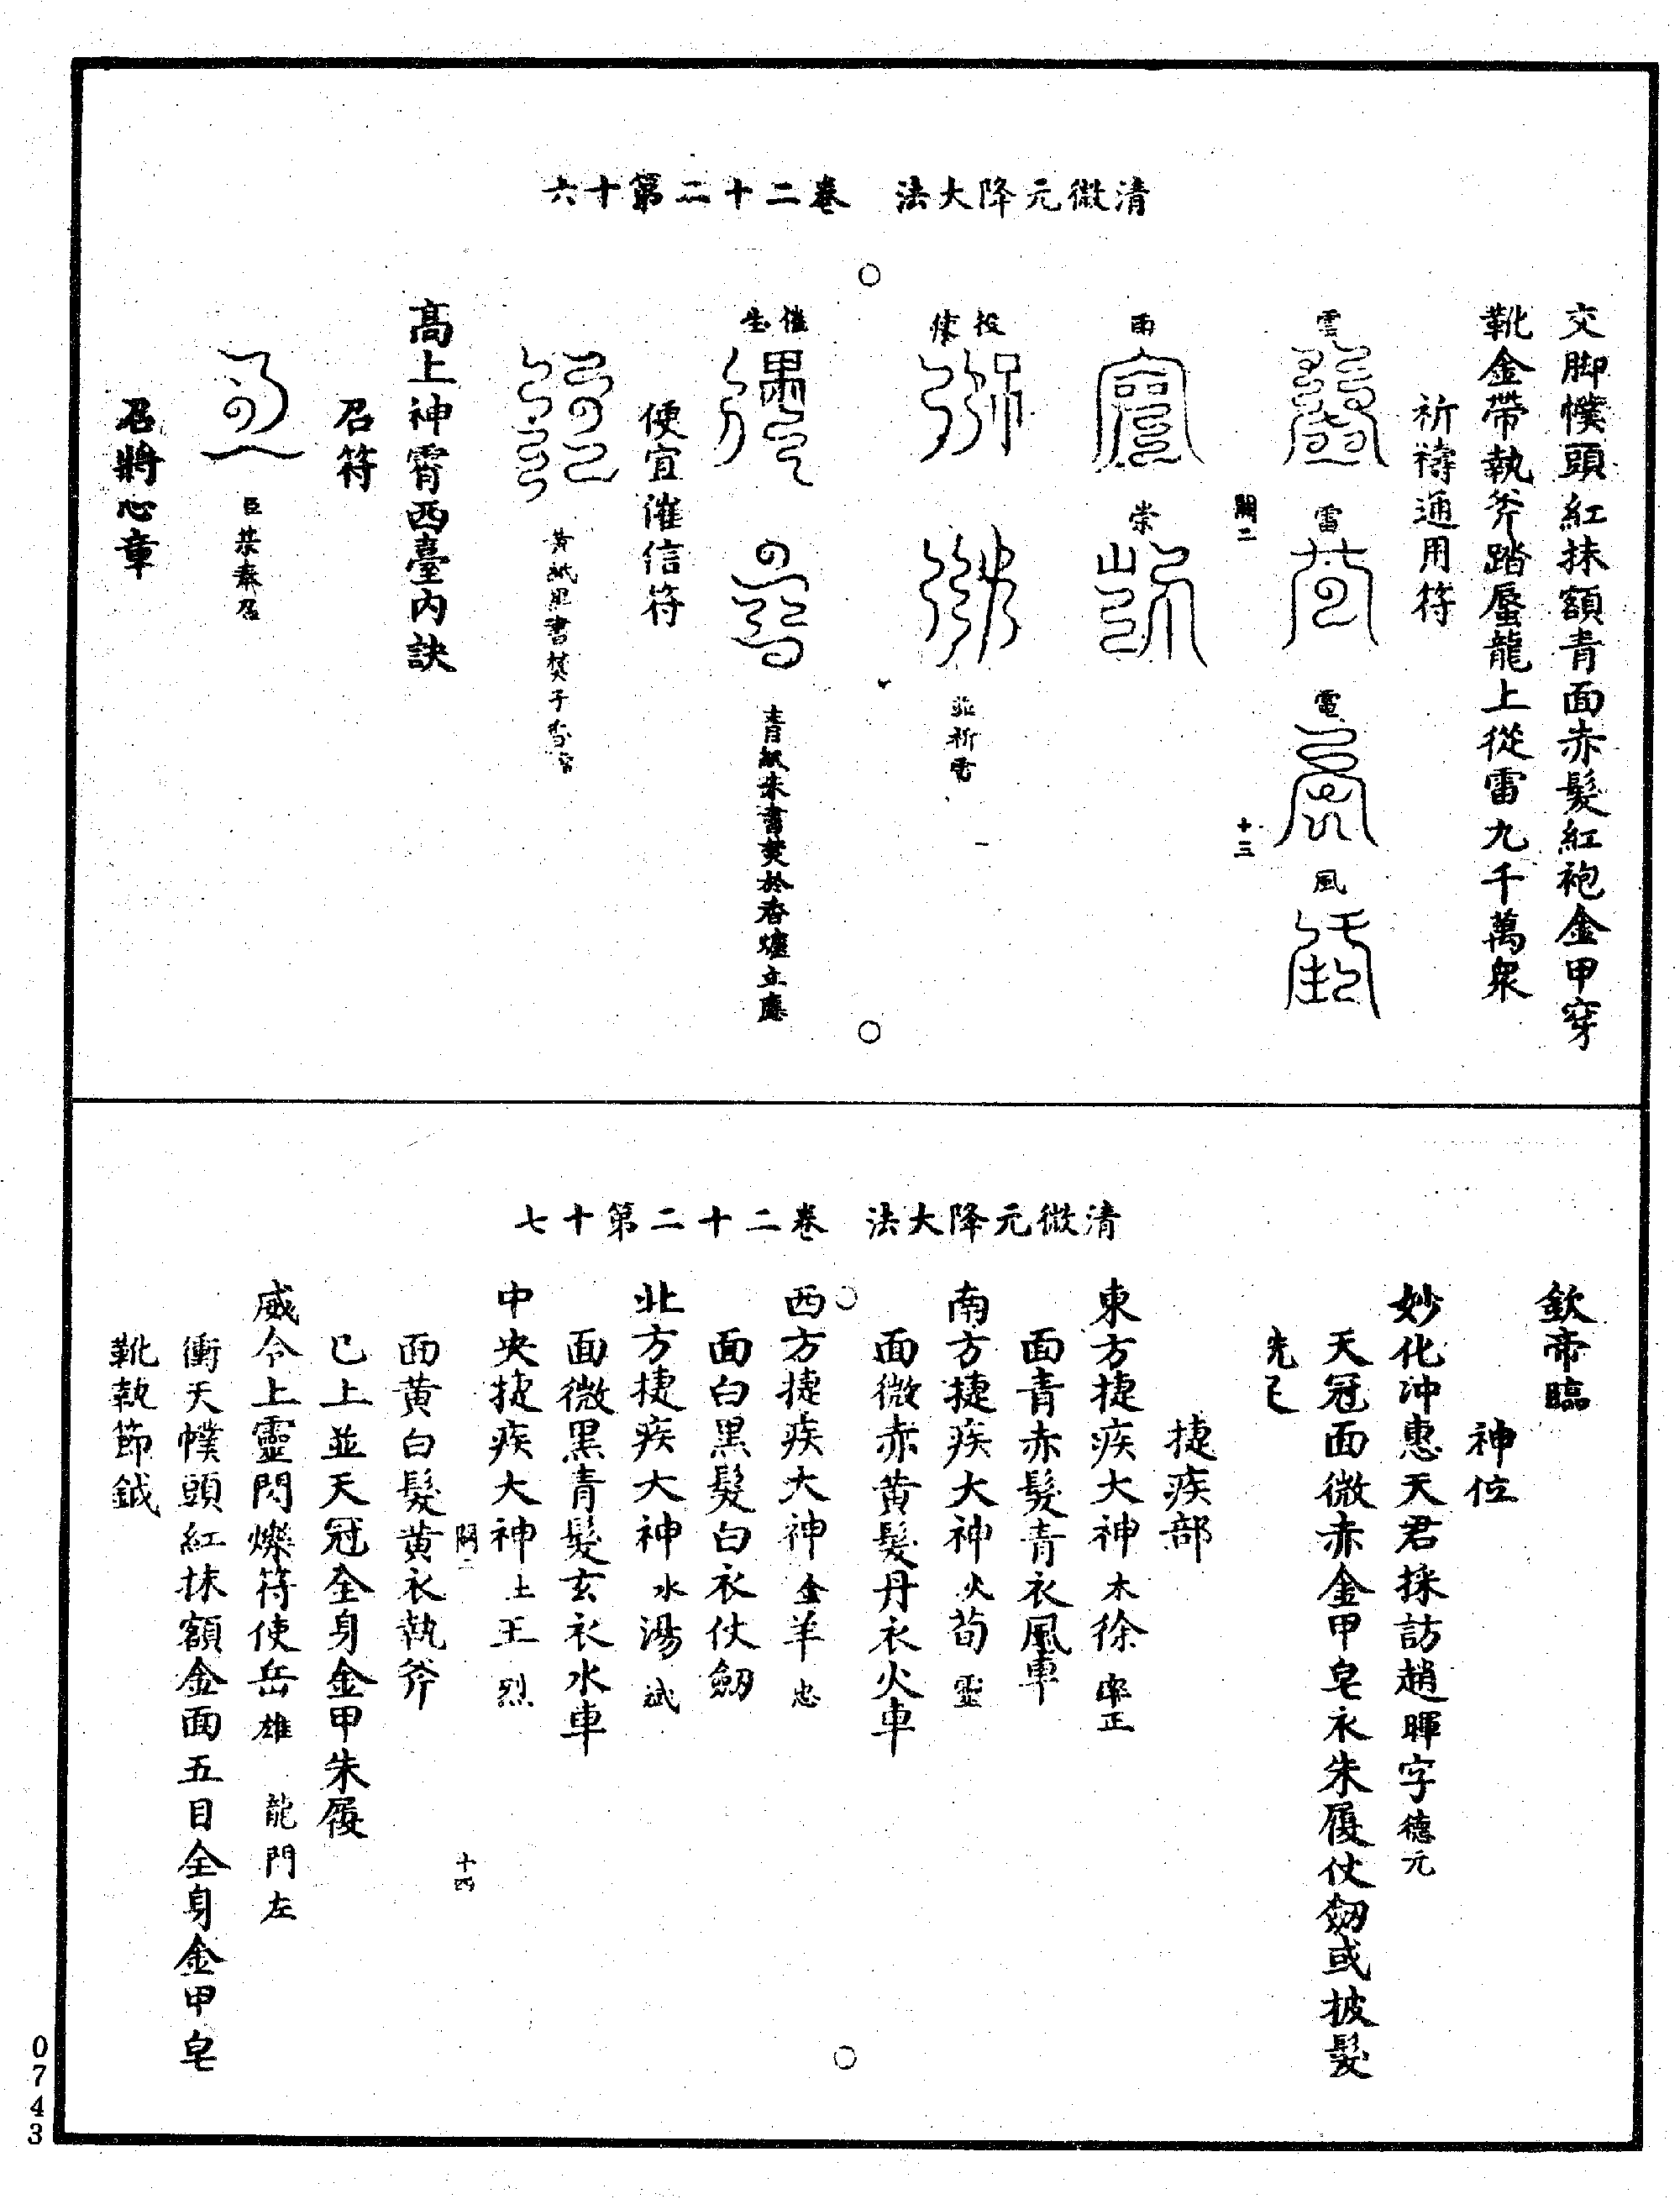 清微元降大法 卷二十二第十六
交脚幞頭紅抹額青面赤髮紅袍金甲穿
靴金帶執斧踏蜃龍上從雷九千萬衆
祈禱通用符
雲 雷 電 風
關二 十三
雨 祟
投 並祈雷
催生 青紙朱書焚於香爐立應
便宜催信符
黃紙黑書焚子香
高上神霄西臺內訣
召符
臣某奏召
召將心章
清微元降大法 卷二十二第十七
欽帝臨
神位
妙化冲惠天君採訪趙暉字德元
天冠面微赤金甲皂衣朱履仗劒或披髮
洗足
捷疾部
東方捷疾大神木徐率正
面青赤髮青衣風車
南方捷疾大神火荀靈
面微赤黃髮丹衣火車
西方捷疾大神金羊忠
面白黑髮白衣仗劒
北方捷疾大神水湯斌
面微黑青髮玄衣水車
中央捷疾大神土王烈
關二 十四
面黃白髮黃衣執斧
已上並天冠全身金甲朱履
威令上靈閃爍符使岳雄 龍門左
衝天幞頭紅抹額金面五目全身金甲皂
靴執節鉞
0743